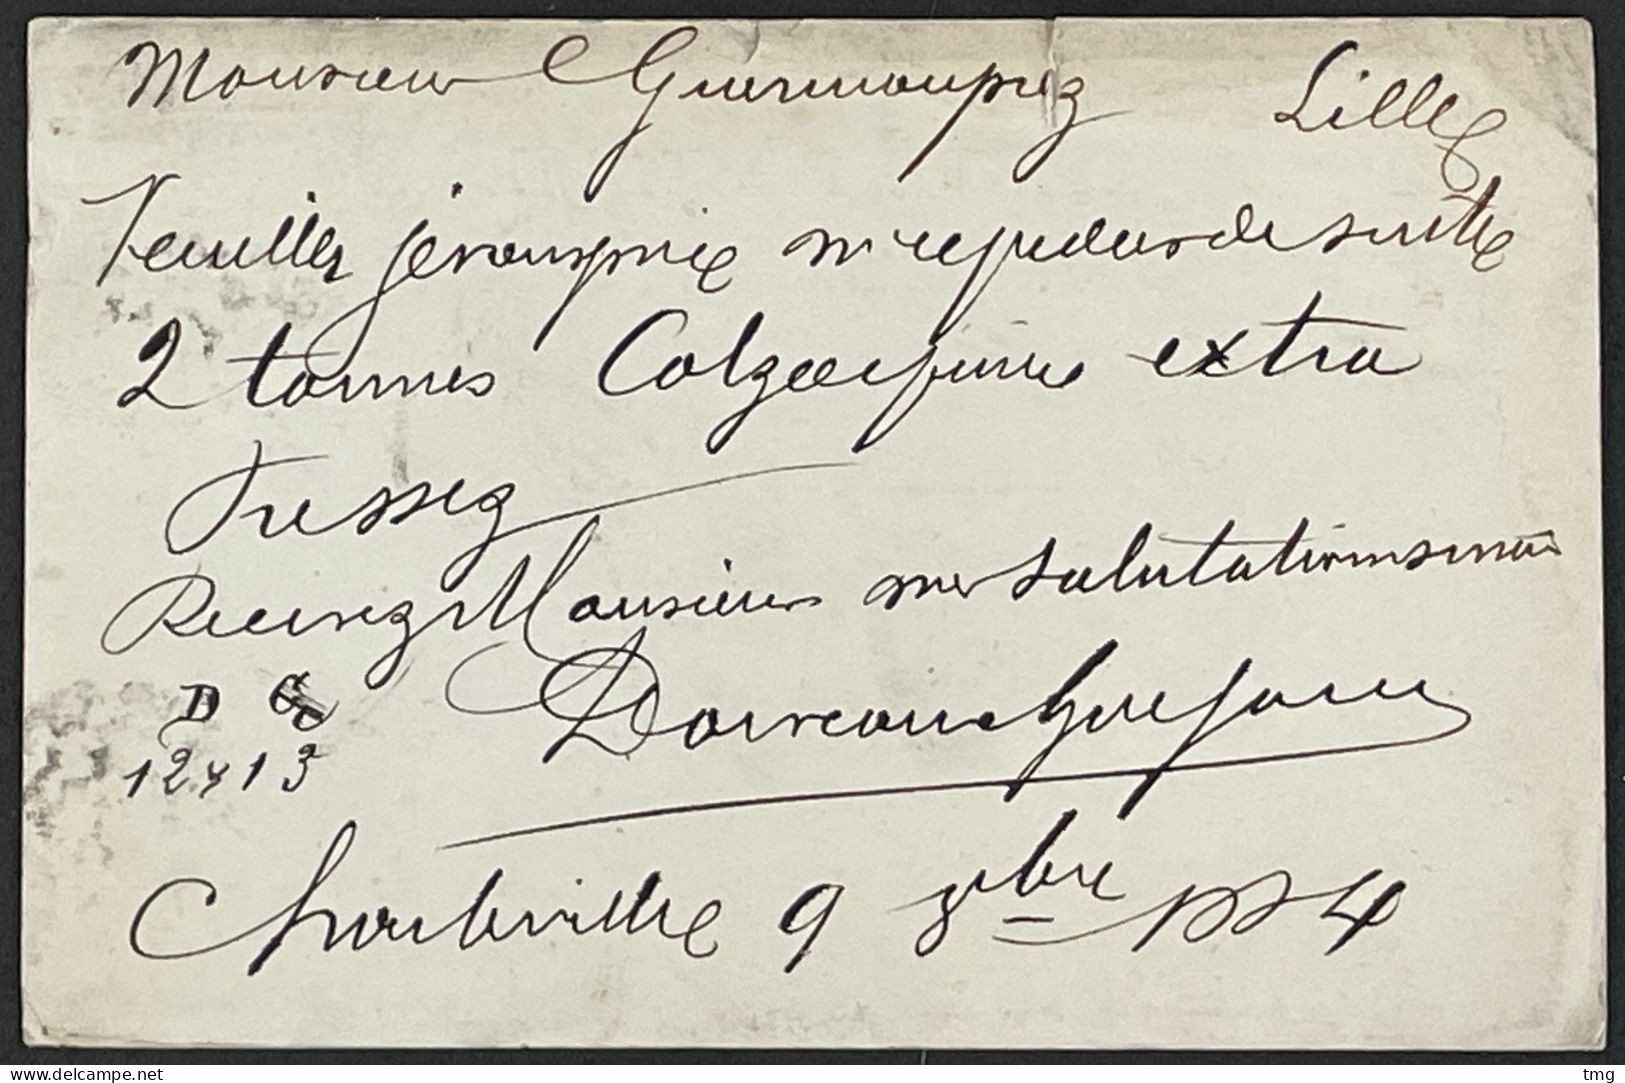 Monsieur Guermonprez Lille
Veuillez je vous prie m'expedier de suite
2 tonnes Colza epurée extra
Pressez
Recevez Monsieur mes salutations
D G
12 x 13
Charleville 9 8bre 1884
delcampe.net
tmg